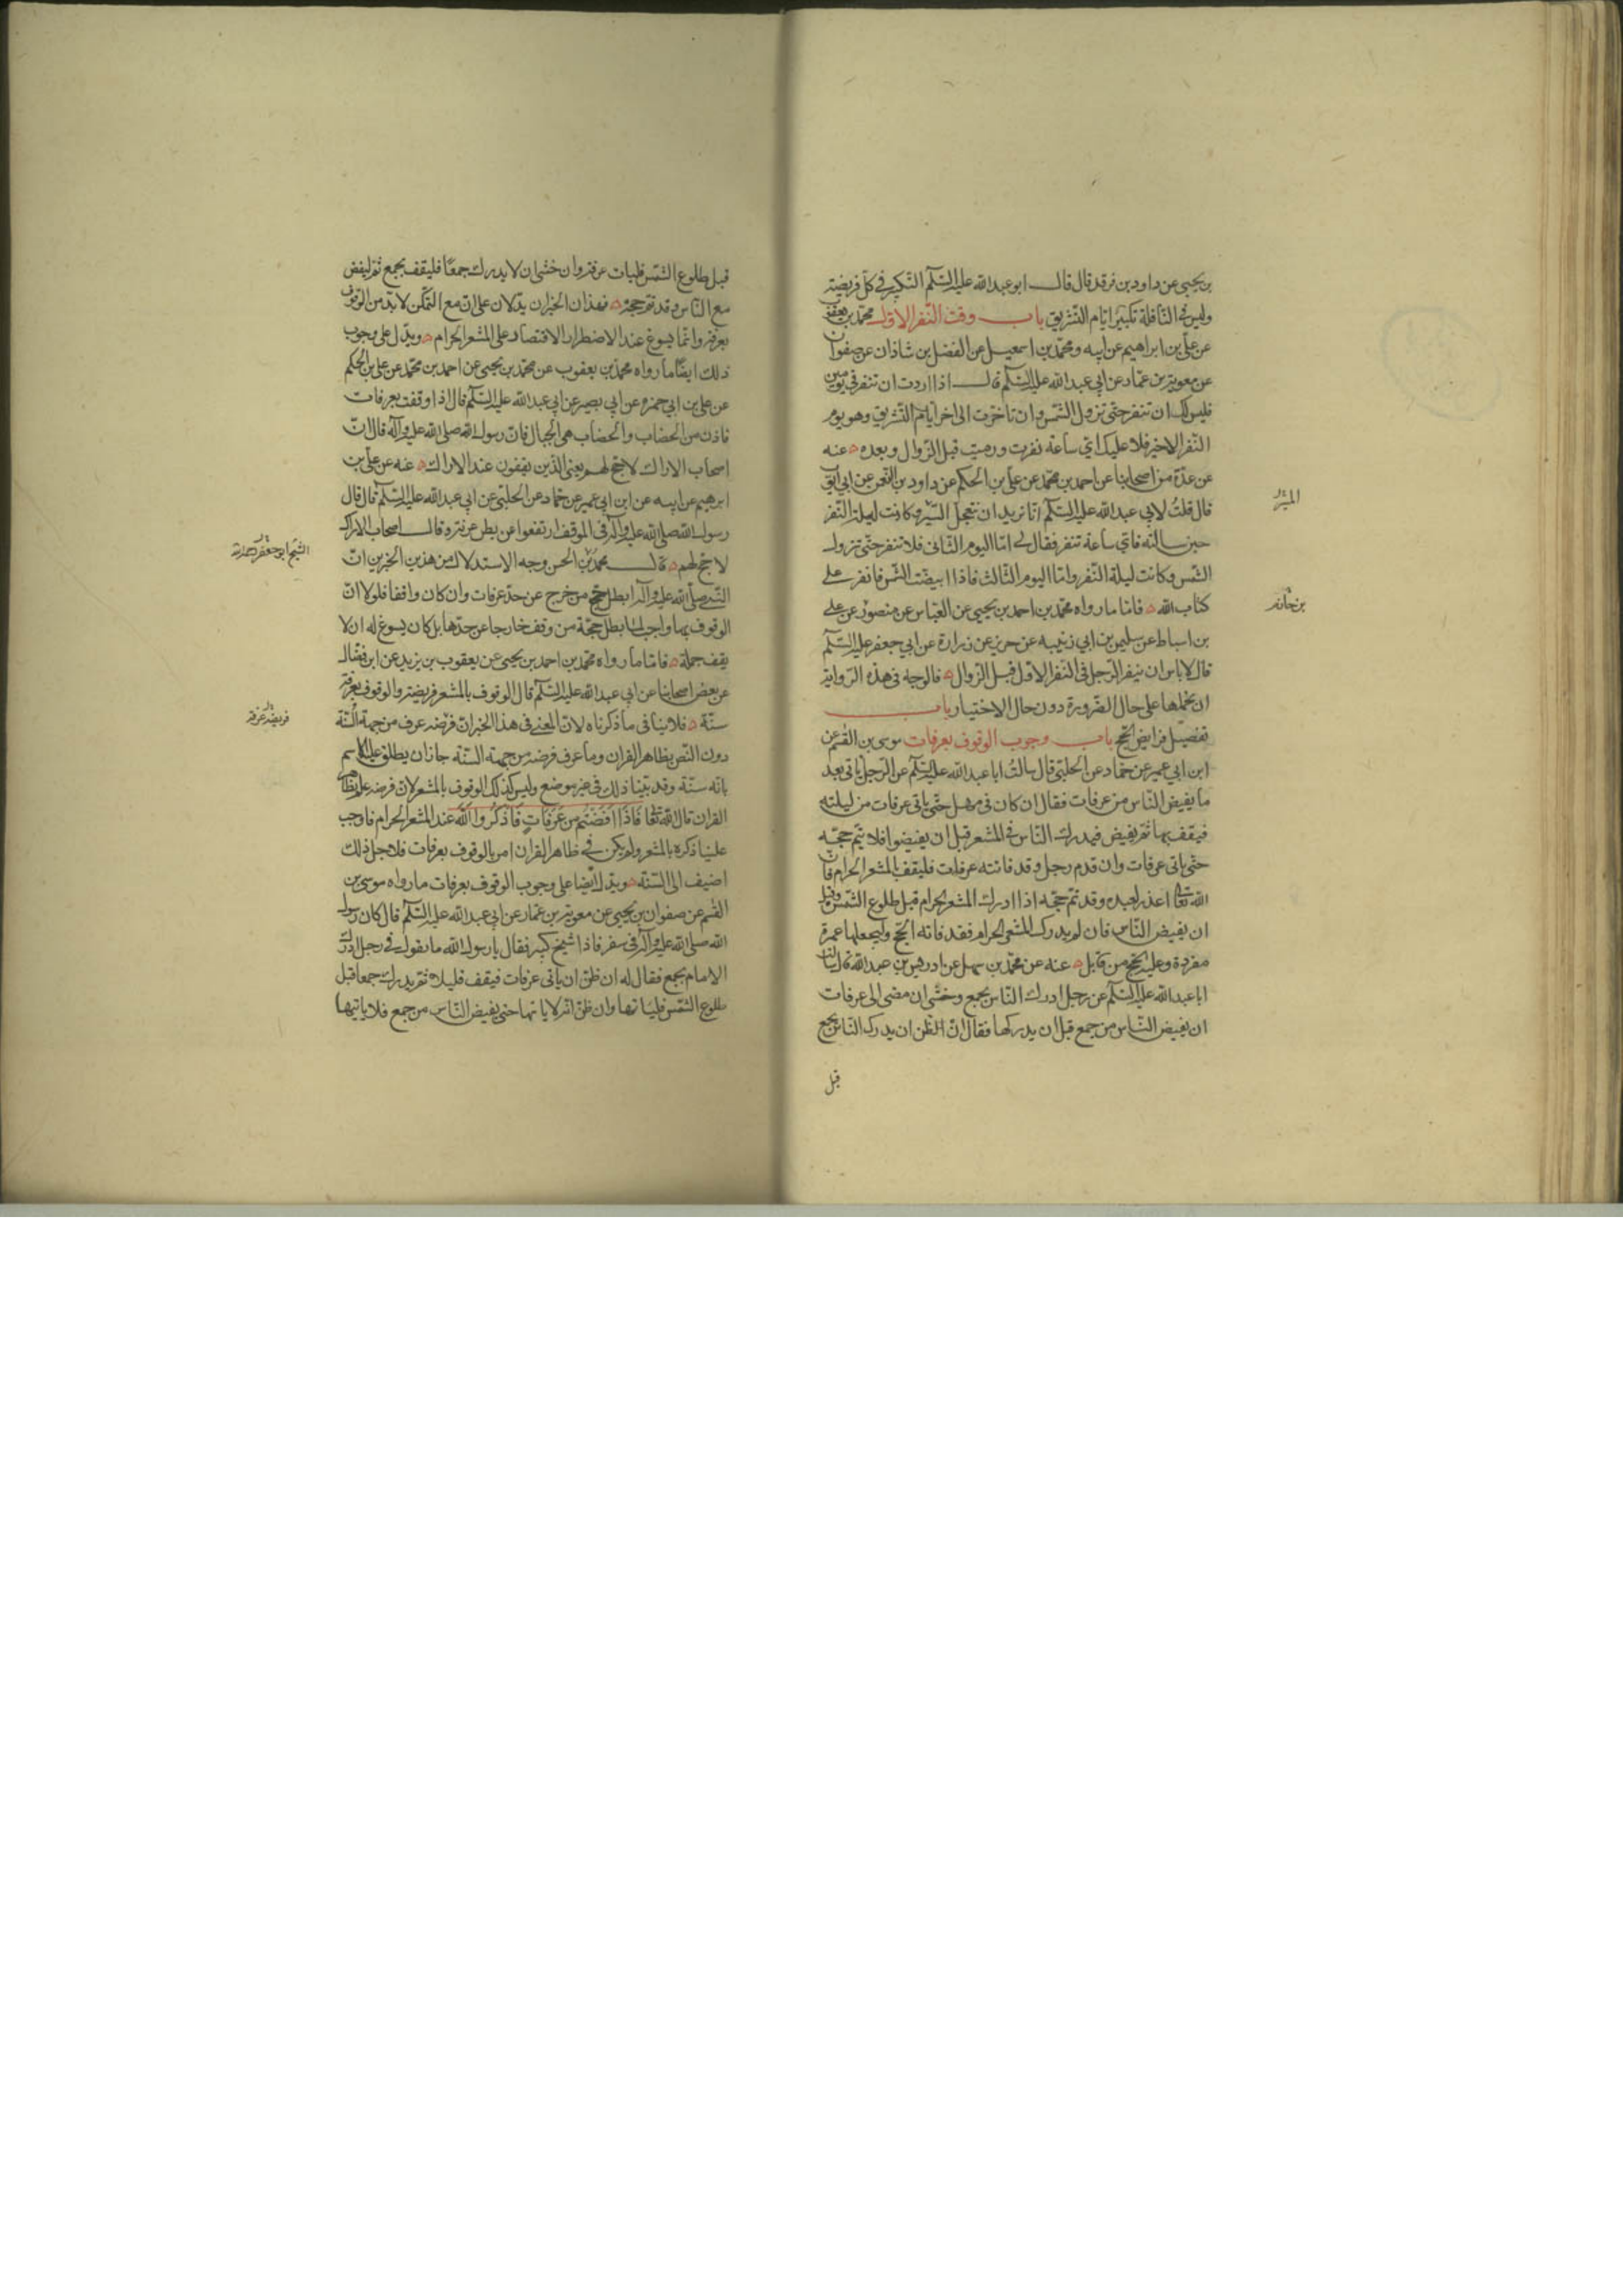 بن يحيى عن داود بن فرقد قال قال ابو عبد الله عليه السلم التكبير فى كل فريضة
وليس فى النافلة تكبير ايام التشريق باب وقت النفر الاول محمد بن يعقوب
عن على بن ابراهيم عن ابيه ومحمد بن اسمعيل عن الفضل بن شاذان عن صفوان
عن معوية بن عمار عن ابي عبد الله عليه السلم قال اذا اردت ان تنفر في يومين
فليس لك ان تنفر حتى تزول الشمس وان تاخرت الى اخر ايام التشريق وهو يوم
النفر الاخير فلا عليك اي ساعة نفرت ورميت قبل الزوال وبعده عنه
عن عدة من اصحابنا عن احمد بن محمد عن على بن الحكم عن داود بن النعمن عن ابي ايوب
قال قلت لابي عبد الله عليه السلم انا نريد ان نتعجل السير وكانت ليلة النفر
حين سالته فاي ساعة ننفر فقال لي اما اليوم الثانى فلا تنفر حتى تزول
الشمس وكانت ليلة النفر واما اليوم الثالث فاذا ابيضت الشمس فانفر على
كتاب الله فاما ما رواه محمد بن احمد بن يحيى عن العباس عن منصور عن على
بن اسباط عن سليمن بن ابي زينبه عن حريز عن زرارة عن ابي جعفر عليه السلم
قال لا باس ان ينفر الرجل فى النفر الاول قبل الزوال فالوجه فى هذه الرواية
ان نحملها على حال الضرورة دون حال الاختيار باب
تفصيل فرايض الحج باب وجوب الوقوف بعرفات موسى بن القسم عن
ابن ابي عمير عن حماد عن الحلبي قال سالت ابا عبد الله عليه السلم عن الرجل ياتى بعد
ما يفيض الناس من عرفات فقال ان كان فى مهل حتى ياتى عرفات من ليلته
فيقف بها ثم يفيض فيدرك الناس فى المشعر قبل ان يفيضوا فلا يتم حجه
حتى ياتى عرفات وان قدم رجل وقد فاتته عرفات فليقف بالمشعر الحرام فان
الله تعالى اعذر لعبده وقد تم حجه اذا ادرك المشعر الحرام قبل طلوع الشمس وقبل
ان يفيض الناس فان لم يدرك المشعر الحرام فقد فاته الحج وليجعلها عمرة
مفردة وعليه الحج من قابل عنه عن محمد بن سهل عن ادريس بن عبد الله قال سالت
ابا عبد الله عليه السلم عن رجل ادرك الناس بجمع وخشى ان مضى الى عرفات
ان يفيض الناس من جمع قبل ان يدركها فقال ان الظن ان يدرك الناس بجمع
قبل
الميثمى
بن حازم
قبل طلوع الشمس فليات عرفة وان خشى ان لا يدرك جمعا فليقف بجمع ثم ليفض
مع الناس وقد تم حجه فهذان الخبران يدلان على ان مع التمكن لا بد من الوقوف
بعرفة وانما يسوغ عند الاضطرار الاقتصار على المشعر الحرام ويدل على وجوب
ذلك ايضا ما رواه محمد بن يعقوب عن محمد بن يحيى عن احمد بن محمد عن على بن الحكم
عن على بن ابي حمزه عن ابي بصير عن ابي عبد الله عليه السلم قال اذا وقفت بعرفات
فادن من الهضاب والهضاب هى الجبال فان رسول الله صلى الله عليه وآله قال ان
اصحاب الاراك لا حج لهم يعنى الذين يقفون عند الاراك عنه عن على بن
ابرهيم عن ابيه عن ابن ابي عمير عن حماد عن الحلبي عن ابي عبد الله عليه السلم قال قال
رسول الله صلى الله عليه وآله فى الموقف ارتفعوا عن بطن عرنة وقال اصحاب الاراك
لا حج لهم قال محمد بن الحسن وجه الاستدلال من هذين الخبرين ان
النبى صلى الله عليه وآله ابطل حج من خرج عن حد عرفات وان كان واقفا فلولا ان
الوقوف بها واجب لما بطل حجة من وقف خارجا عن حدها بل كان يسوغ له ان لا
يقف جملة فاما ما رواه محمد بن احمد بن يحيى عن يعقوب بن يزيد عن ابن فضال
عن بعض اصحابنا عن ابي عبد الله عليه السلم قال الوقوف بالمشعر فريضة والوقوف بعرفة
سنة فلا ينافى ما ذكرناه لان المعنى فى هذا الخبر ان فرضه عرف من جهة السنة
دون النص بظاهر القران وما عرف فرضه من جهة السنة جاز ان يطلق عليه الاسم
بانه سنة وقد بينا ذلك فى غير موضع وليس كذلك الوقوف بالمشعر لان فرضه علم بظاهر
القران قال الله تعالى فاذا افضتم من عرفات فاذكروا الله عند المشعر الحرام فاوجب
علينا ذكره بالمشعر ولم يكن في ظاهر القران امر بالوقوف بعرفات فلاجل ذلك
اضيف الى السنة ويدل ايضا على وجوب الوقوف بعرفات ما رواه موسى بن
القسم عن صفوان بن يحيى عن معوية بن عمار عن ابي عبد الله عليه السلم قال كان رسول
الله صلى الله عليه وآله فى سفر فاذا شيخ كبير فقال يا رسول الله ما تقول في رجل ادرك
الامام بجمع فقال له ان ظن ان ياتى عرفات فيقف قليلا ثم يدرك جمعا قبل
طلوع الشمس فلياتها وان ظن انه لا ياتها حتى يفيض الناس من جمع فلا ياتيها
الشيخ ابو جعفر رحمه الله
فريضة عرفة